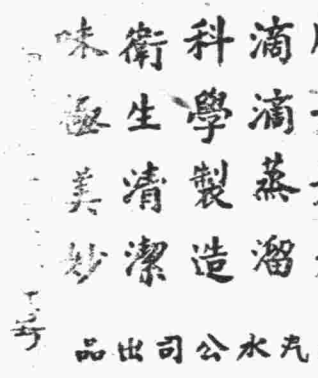 滴滴蒸溜
科學製造
衛生清潔
味極美妙
汽水公司出品